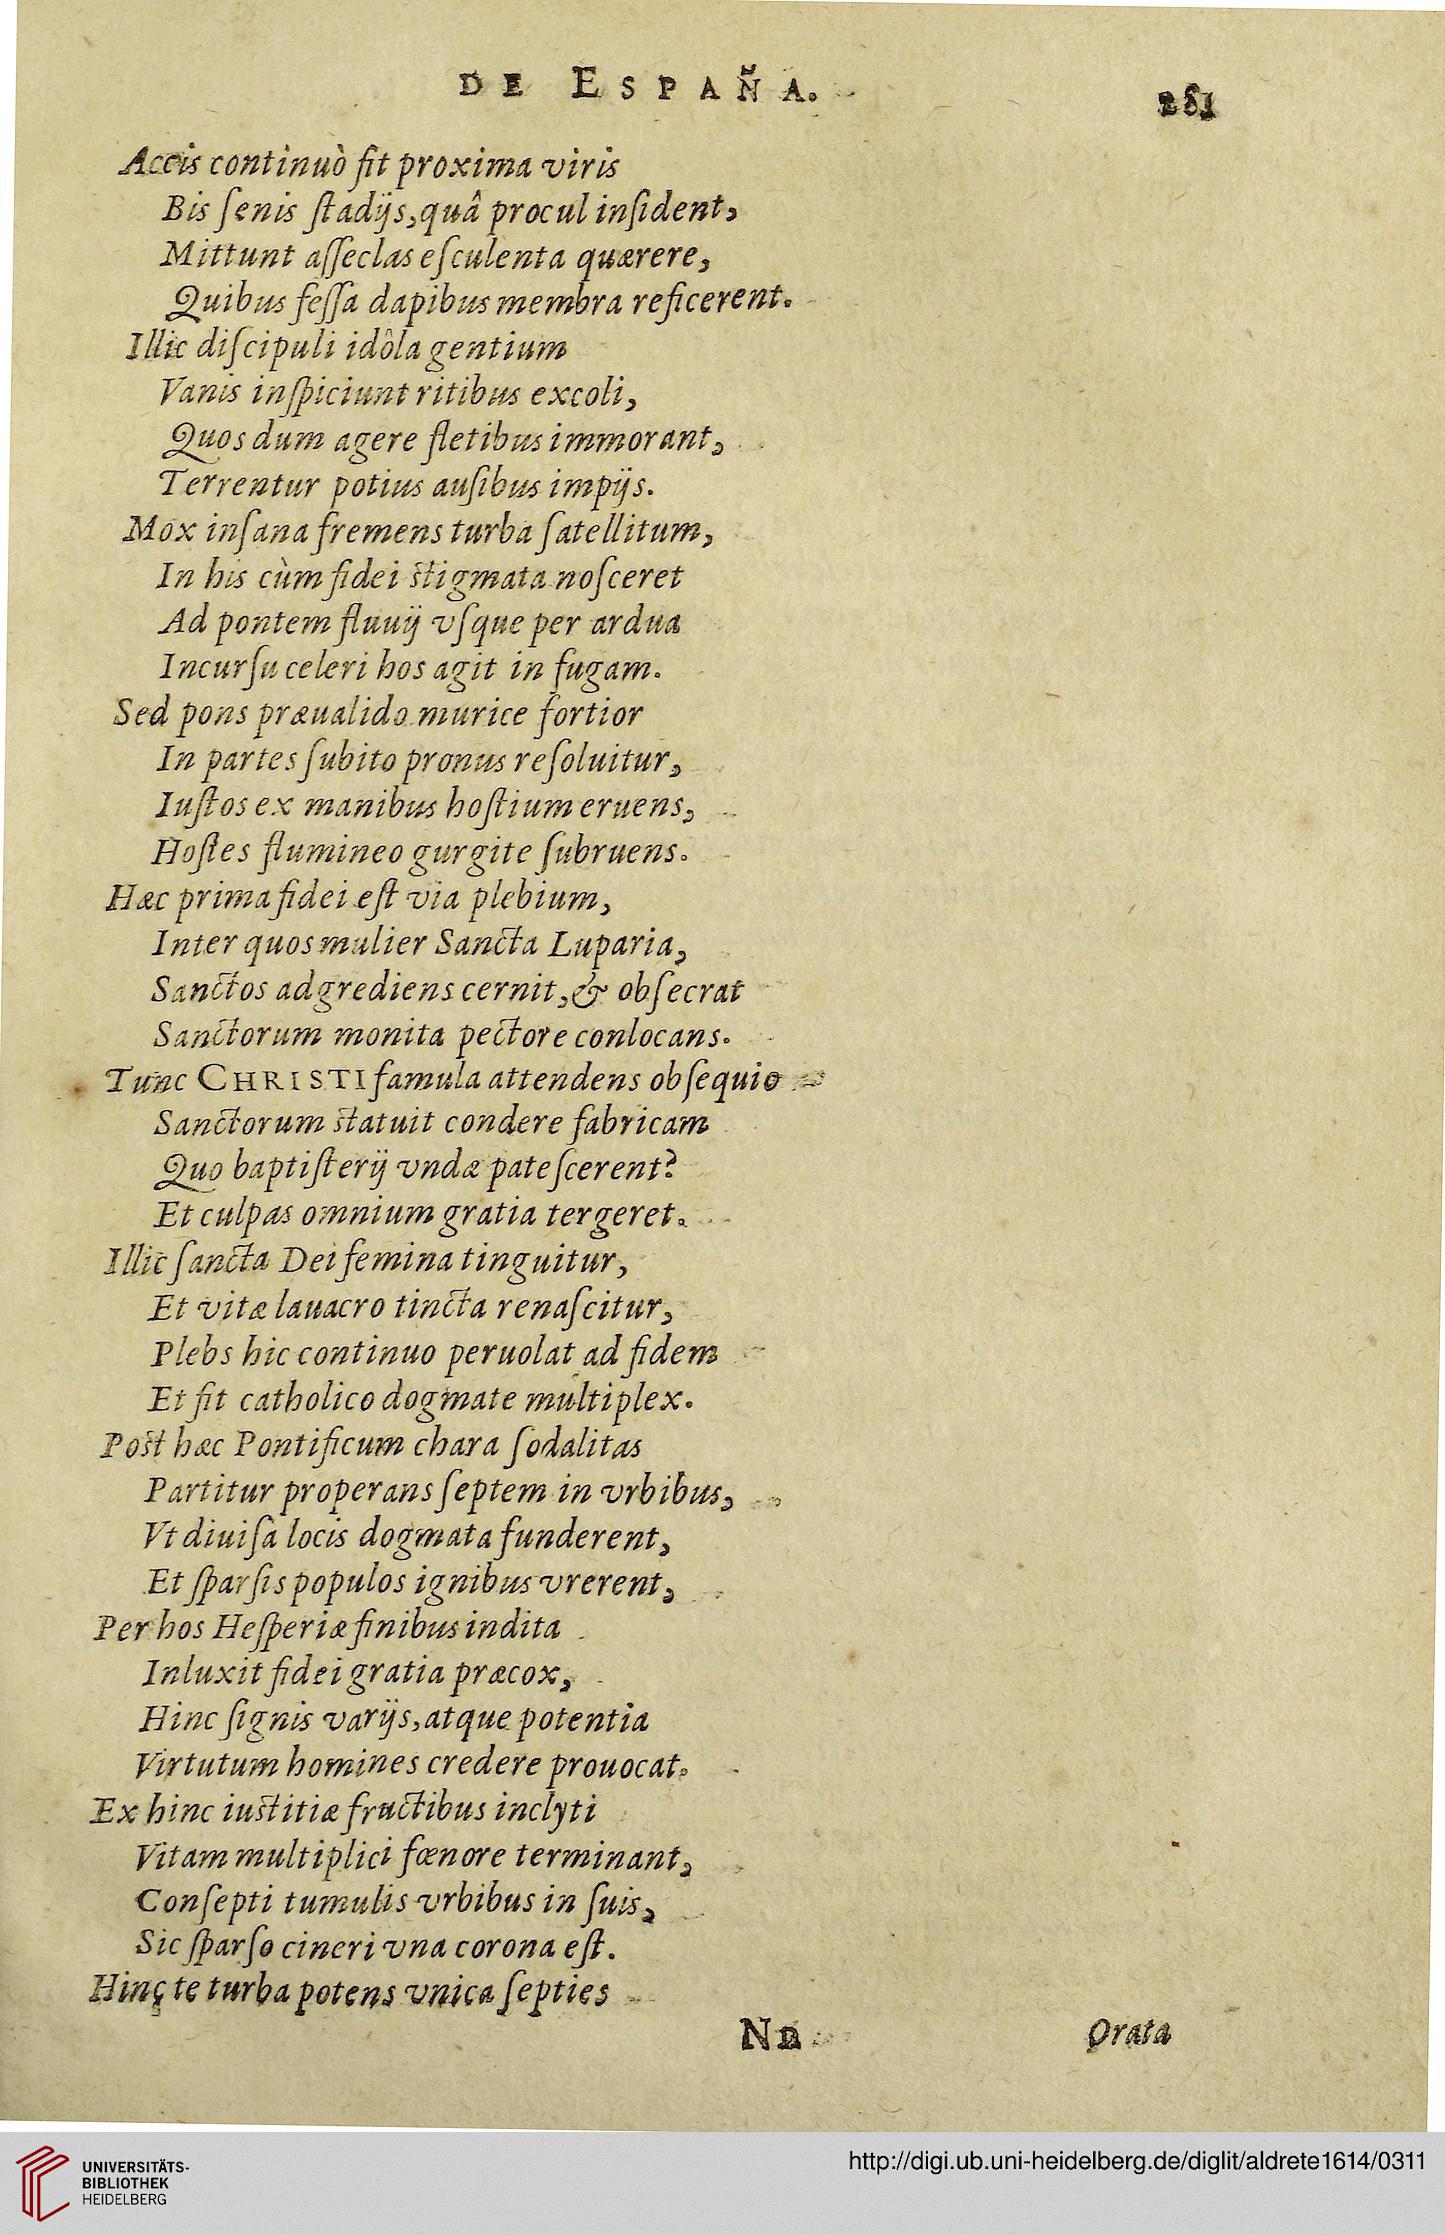 DE ESPAÑA. 281
Accis continuò fit proxima viris
Bis ſenis ſtadijs, quâ procul inſident,
Mittunt aſſeclas eſculenta quærere,
Quibus feſſa dapibus membra reficerent.
Illic diſcipuli idôla gentium
Vanis inſpiciunt ritibus excoli,
Quos dum agere fletibus immorant,
Terrentur potius auſibus impijs.
Mox inſana fremens turba ſatellitum,
In his cùm fidei ſtigmata noſceret
Ad pontem fluuij vſque per ardua
Incurſu celeri hos agit in fugam.
Sed pons præualido murice fortior
In partes ſubito pronus reſoluitur,
Iuſtos ex manibus hoſtium eruens,
Hoſtes flumineo gurgite ſubruens.
Hæc prima fidei eſt via plebium,
Inter quos mulier Sancta Luparia,
Sanctos adgrediens cernit, & obſecrat
Sanctorum monita pectore conlocans.
Tunc CHRISTI famula attendens obſequio
Sanctorum ſtatuit condere fabricam
Quo baptiſterij vndæ pateſcerent?
Et culpas omnium gratia tergeret.
Illic ſancta Dei femina tinguitur,
Et vitæ lauacro tincta renaſcitur,
Plebs hic continuo peruolat ad fidem
Et fit catholico dogmate multiplex.
Poſt hæc Pontificum chara ſodalitas
Partitur properans ſeptem in vrbibus,
Vt diuiſa locis dogmata funderent,
Et ſparſis populos ignibus vrerent,
Per hos Heſperiæ finibus indita
Inluxit fidei gratia præcox,
Hinc ſignis varijs, atque potentia
Virtutum homines credere prouocat.
Ex hinc iuſtitiæ fructibus inclyti
Vitam multiplici fœnore terminant,
Conſepti tumulis vrbibus in ſuis,
Sic ſparſo cineri vna corona eſt.
Hinc te turba potens vnica ſepties
Nn Orata
UNIVERSITÄTS-
BIBLIOTHEK
HEIDELBERG
http://digi.ub.uni-heidelberg.de/diglit/aldrete1614/0311